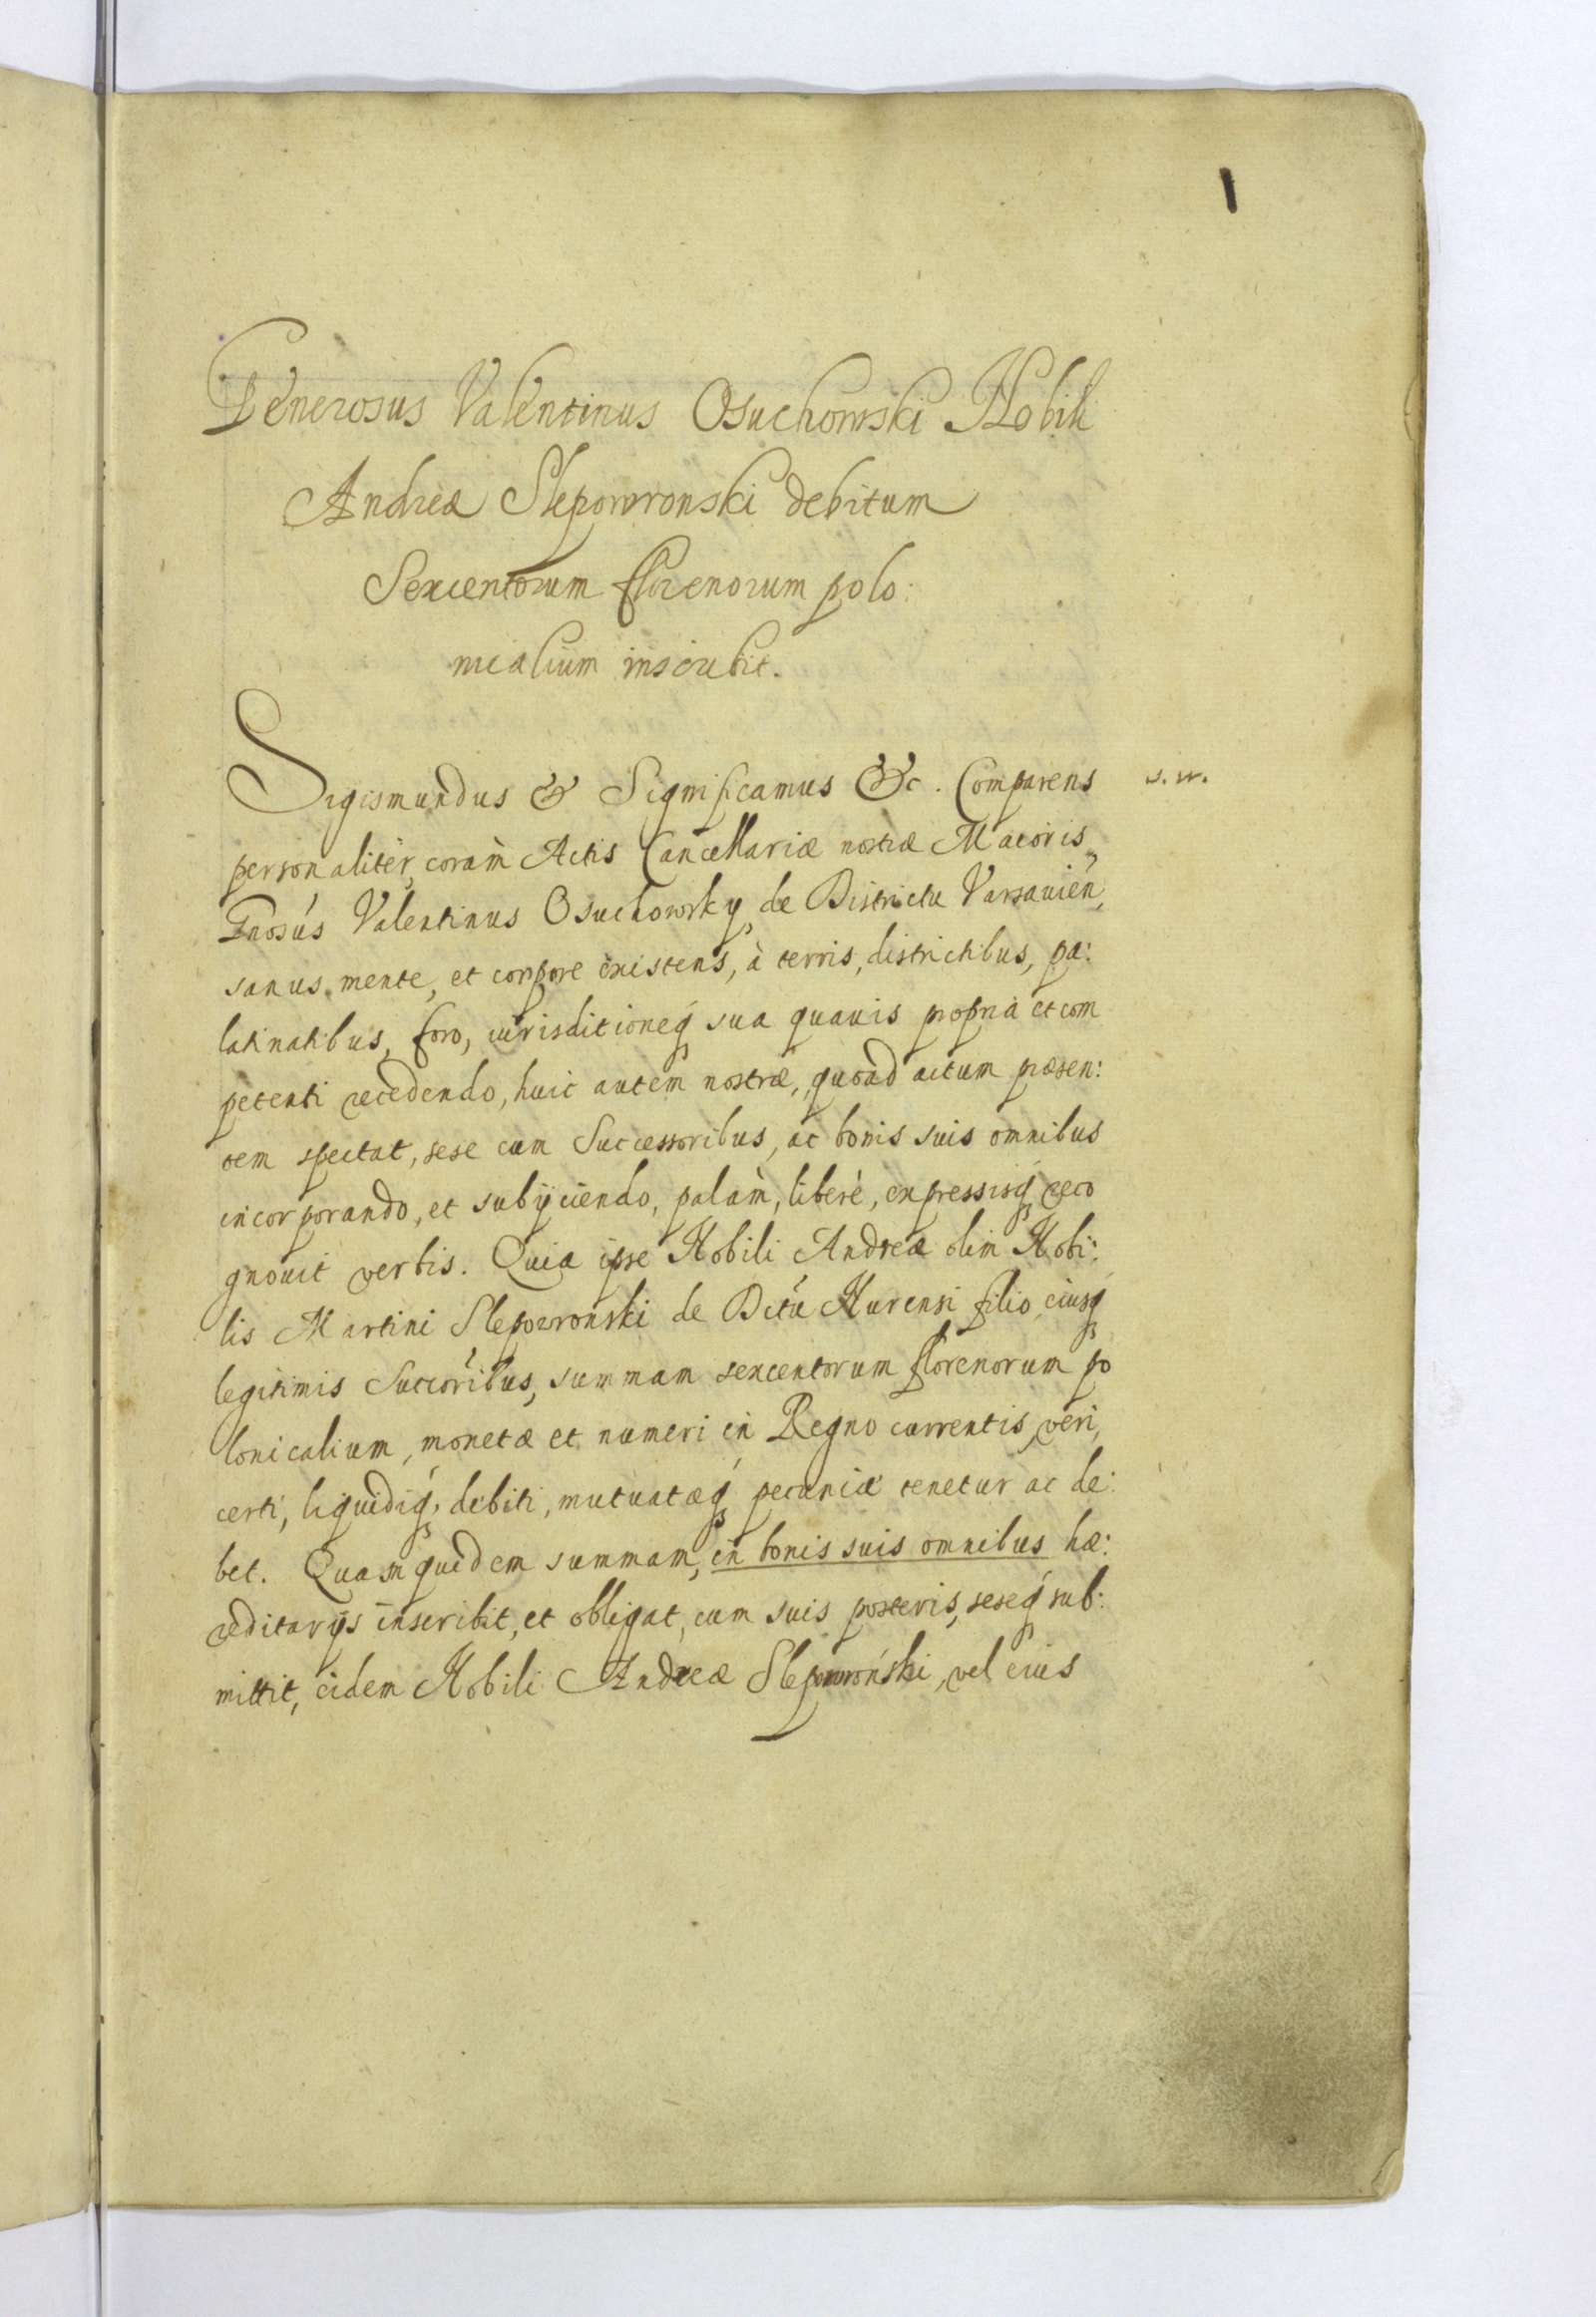 1
Generosus Valentinus Osuchowski Nobili
Andreæ Slepowronski debitum
Sexcentorum florenorum polo:
nicalium inscribit.
Sigismundus & Significamus &c. Comparens
personalitèr, coràm Actis Cancellariæ nostræ Maioris,
Gnosús Valentinus Osuchowsky de Districtu Varsauień,
sanus mente, et corpore existens, à terris, districtibus, pa:
latinatibus, foro, iurisditioneq́ sua quauis propria et com
petenti recedendo, huic autem nostræ, quoad actum præsen:
tem spectat, sese cum Successoribus, ac bonis suis omnibus
incorporando, et subijciendo, palàm, liberè, expressisq́ reco
gnouit verbis. Quia ipse Nobili Andreæ olim Nobi:
lis Martini Slepowronski de Dctú Nurensi filio, eiusq́
legitimis Succóribus, summam sexcentorum florenorum po
lonicalium, monetæ et numeri in Regno currentis, veri,
certi, liquidiq́, debiti, mutuatæq́ pecuniæ tenetur ac de:
bet. Quam quidem summam, in bonis suis omnibus hæ:
reditarijs inscribit, et obligat, cum suis posteris, seseq́ sub:
mittit, eidem Nobili Andreæ Slepowroński, vel eius